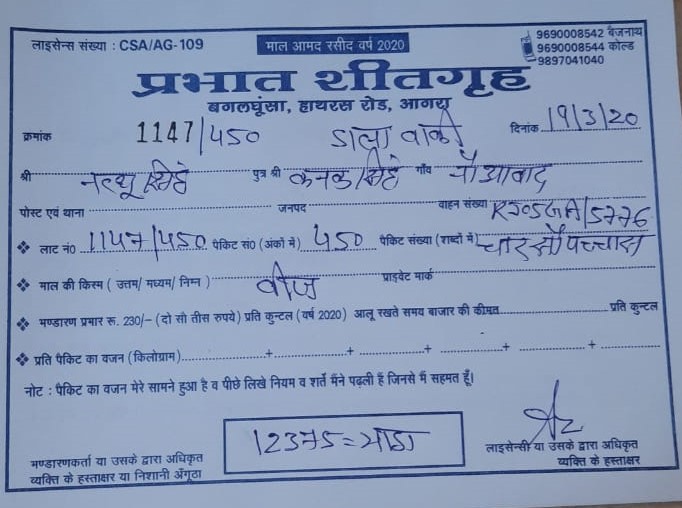 लाइसेन्स संख्या : CSA/AG-109 माल आमद रसीद वर्ष 2020 9690008542 बैजनाथ
9690008544 कोल्ड
9897041040
प्रभात शीतगृह
बगलघूंसा, हाथरस रोड, आगरा
क्रमांक 1147/450 डाला बाकी दिनांक 19/3/20
श्री नत्थू सिंह पुत्र श्री कनक सिंह गाँव नौआबाद
पोस्ट एवं थाना जनपद वाहन संख्या RJ05GA/5776
लाट नं0 1147/450 पैकिट सं0 (अंकों में) 450 पैकिट संख्या (शब्दों में) चारसौ पच्चास
माल की किस्म ( उत्तम/ मध्यम/ निम्न ) बीज प्राइवेट मार्क
भण्डारण प्रभार रू. 230/- (दो सौ तीस रुपये) प्रति कुन्टल (वर्ष 2020) आलू रखते समय बाजार की कीमत प्रति कुन्टल
प्रति पैकिट का वजन (किलोग्राम) + + + + +
नोट : पैकिट का वजन मेरे सामने हुआ है व पीछे लिखे नियम व शर्ते मैंने पढ़ली हैं जिनसे मैं सहमत हूँ।
12375 = भाडा
भण्डारणकर्ता या उसके द्वारा अधिकृत
व्यक्ति के हस्ताक्षर या निशानी अँगूठा
लाइसेन्सी या उसके द्वारा अधिकृत
व्यक्ति के हस्ताक्षर